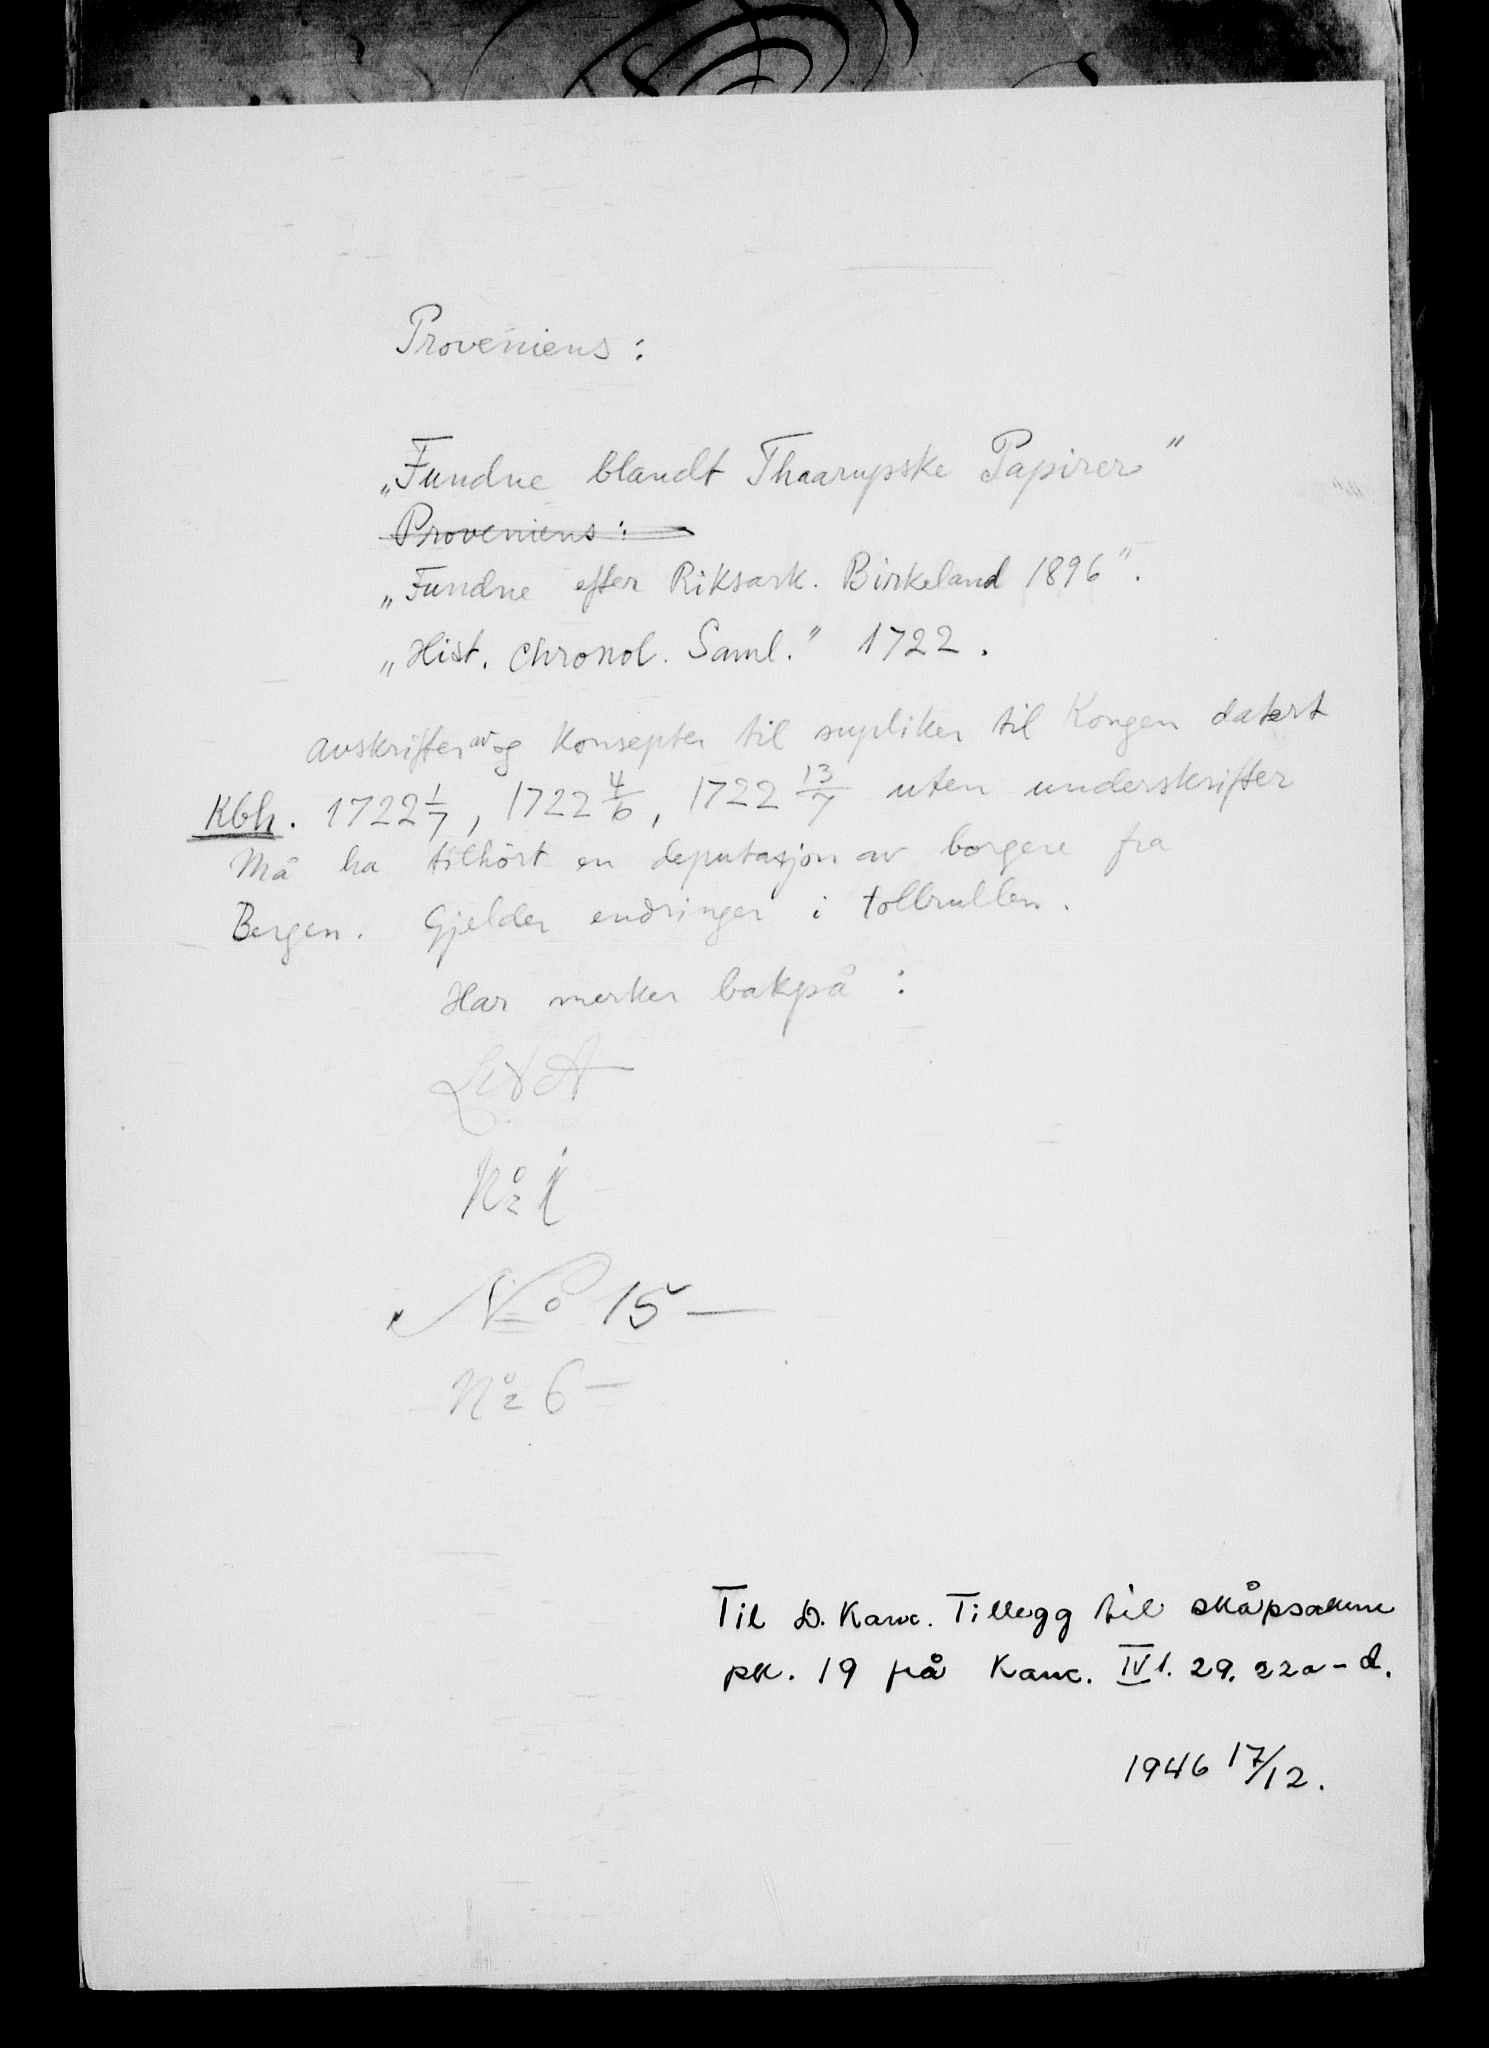 Proveniens:
„Fundne blandt Thaarupske Papirer"
Proveniens:
„Fundne efter Riksark. Birkeland 1896".
„Hist. chronol. Saml." 1722.
Avskrifter av og konsepter til supliker til Kongen datert
Kbh. 1722 1/7, 1722 4/6, 1722 13/7 uten underskrifter
Må ha tilhört en deputasjon av borgere fra
Bergen. Gjelder endringer i tollrullen.
Har merker bakpå:
Lit A
No 1
No 15 —
No 6 —
Til D. Kanc. Tillegg til skåpsakene
pk. 19 på Kanc. IV 1. 29. 22a-d.
1946 17/12.